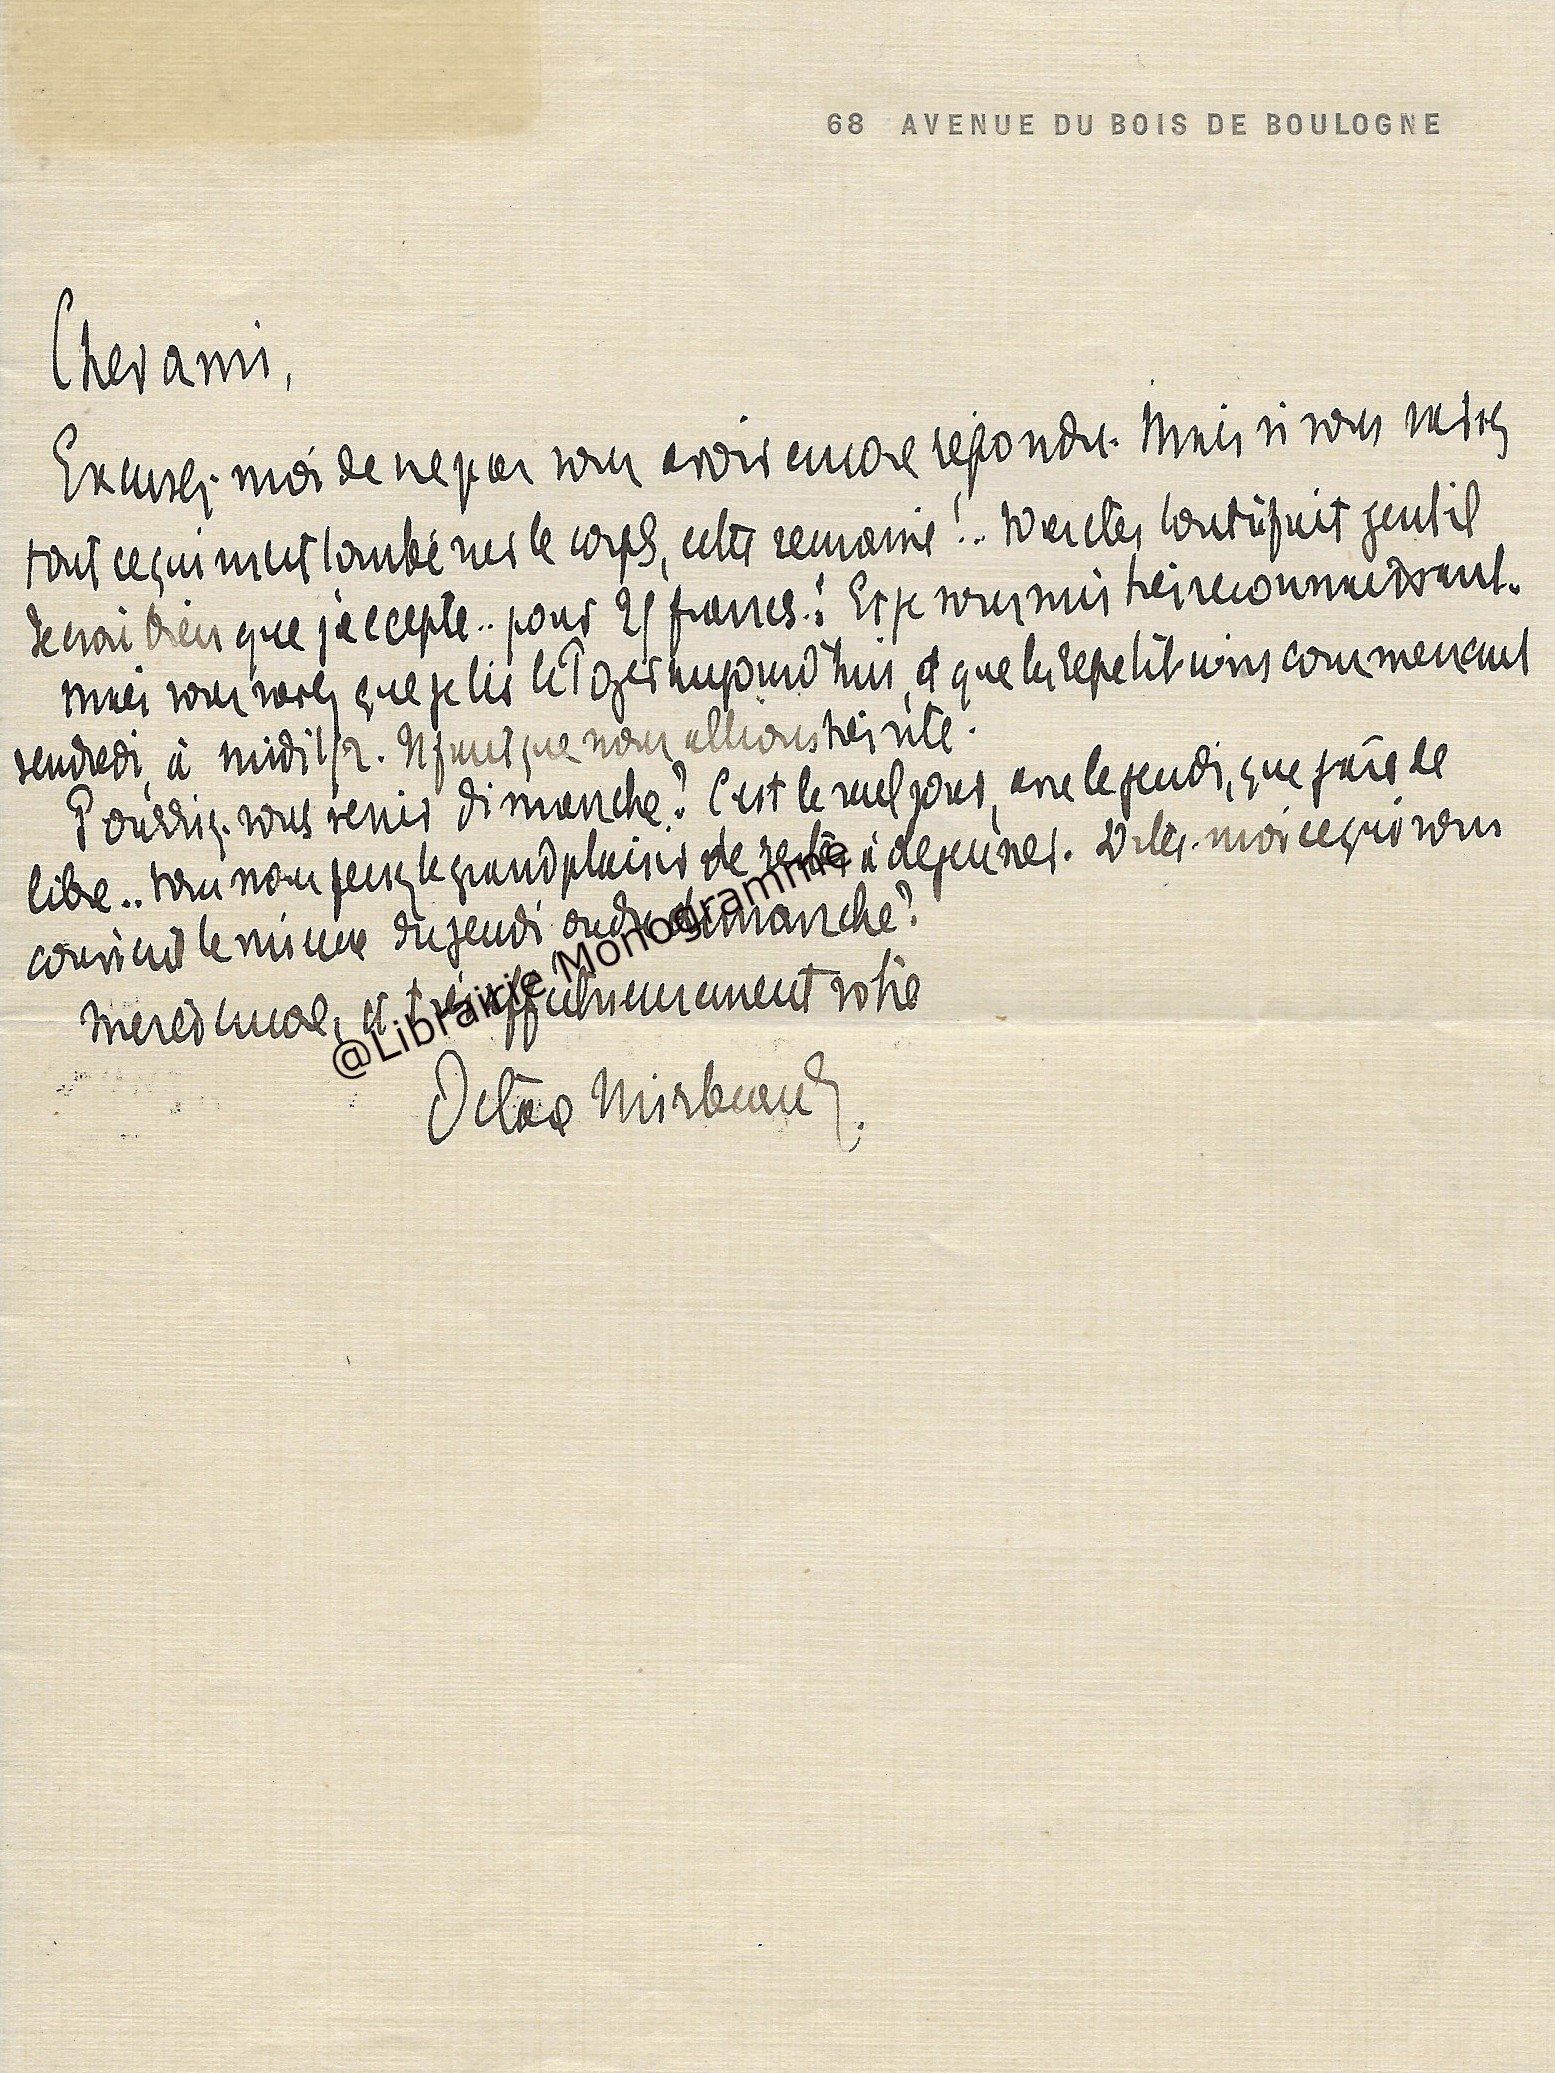 68 AVENUE DU BOIS DE BOULOGNE
Cher ami,
Excusez-moi de ne pas vous avoir encore répondu. Mais si vous saviez
tout ce qui m'est tombé sur le corps, cette semaine !.. Vous êtes tout à fait gentil
Je crois bien que j'accepte.. pour 25 francs.! Et je vous suis très reconnaissant.
Mais vous savez que je lis le Foyer aujourd'hui, et que les répétitions commencent
vendredi, à midi 1/2. Il faut que nous allions très vite.
Pourriez-vous venir dimanche ? C'est le seul jour, avec le jeudi, que j'aie de
libre.. vous nous ferez le grand plaisir de rester à déjeuner. Dites-moi ce qui vous
convient le mieux du jeudi ou du dimanche ?
Merci encore, et très affectueusement votre
Octave Mirbeau.
@Librairie Monogramme